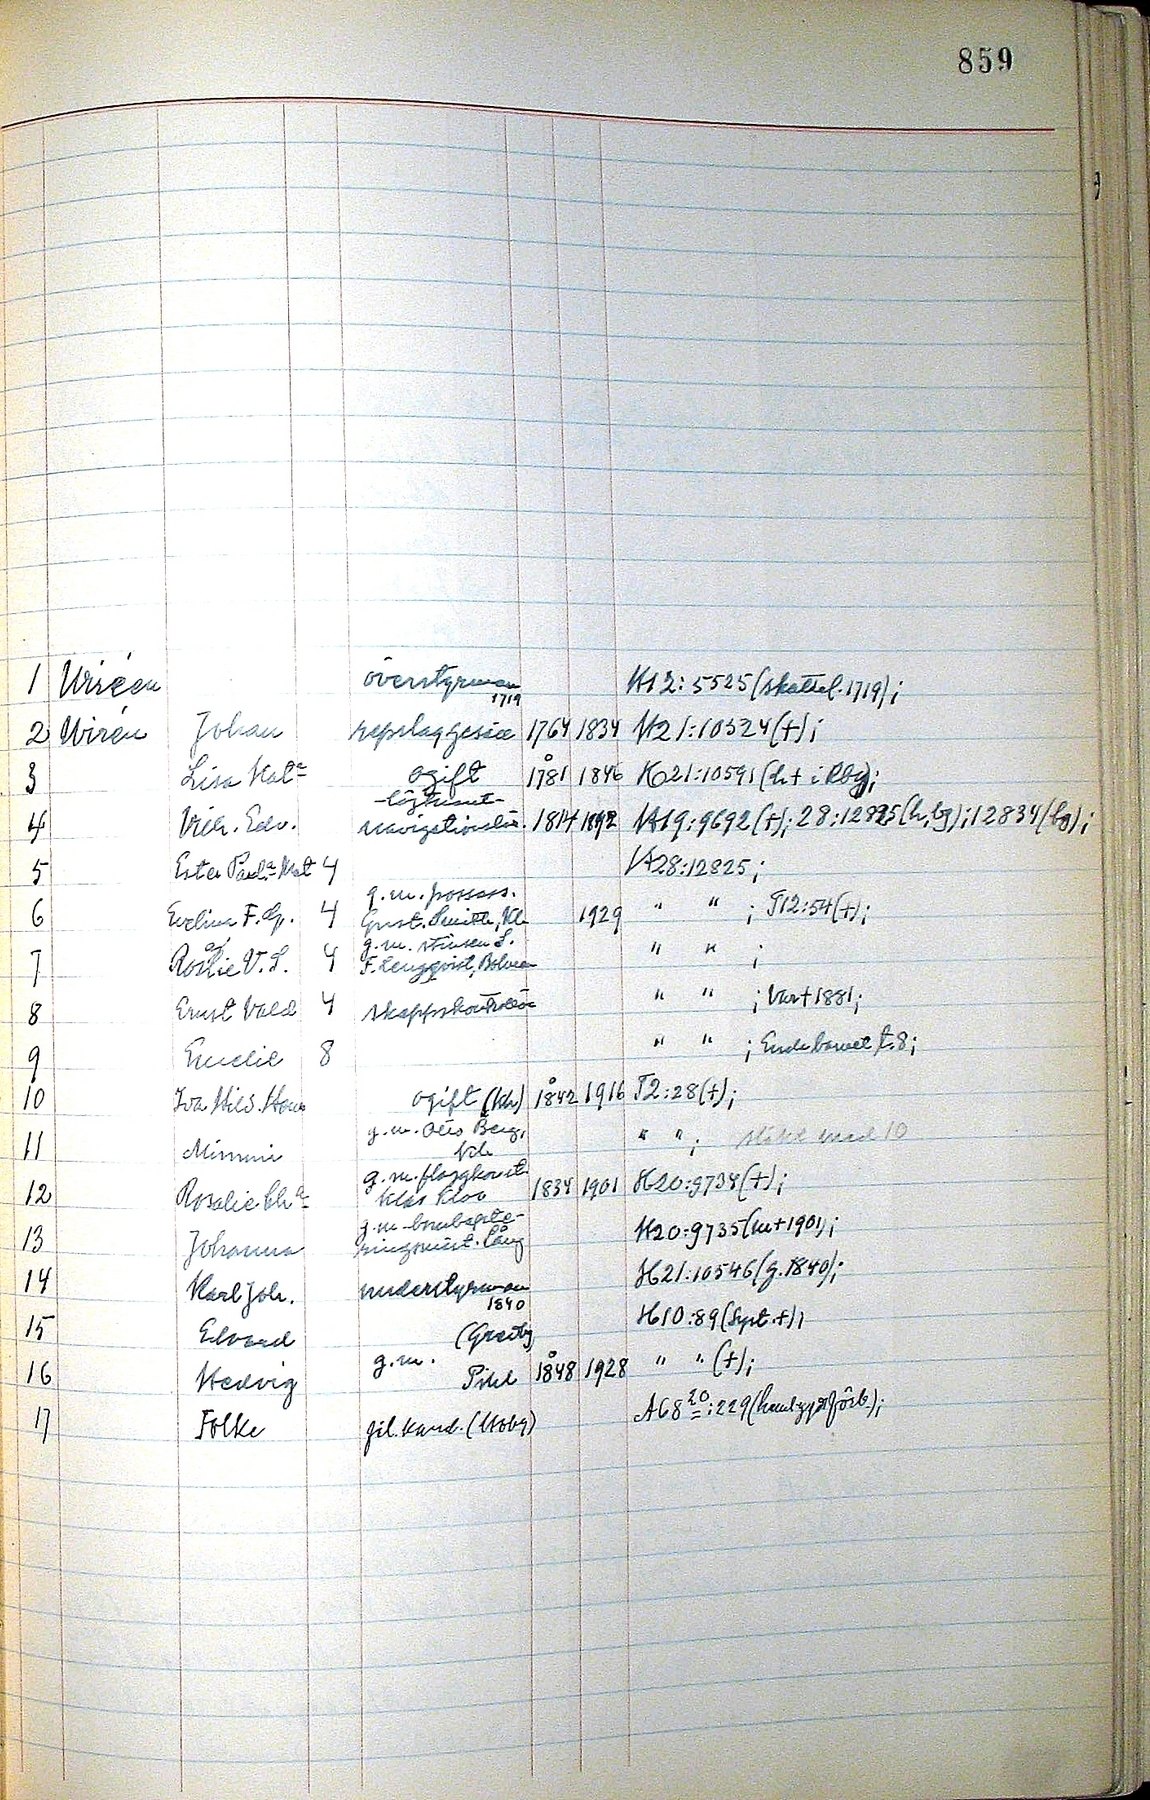 859
1 Wiréen överstyrman 1719 K12:5525 (skattel. 1719);
2 Wirén Johan repslaggesäll 1764 1834 K21:10524 (+);
3 Lisa Kat:a ogift 1781 1846 K21:10591 (h+ i Kby);
4 Vilh. Edv. -löjtnant- navigationslär. 1814 1892 K19:9692 (+); 28:12825 (h, bg); 12834 (bg);
5 Ester Paul:a Mat 4 K28:12825;
6 Evelina F. 4 g.m. possess. Gust. Smitt, Kl 1929 " " ; T12:54 (+);
7 Rosalie V. S. 4 g.m. F. Lengqvist, " " ;
8 Ernst Vald 4 skeppskontrollör " " ; Var + 1881;
9 Emelie 8 " " ; Enda barnet t. 8;
10 Ida Hild. ogift (Kl) 1842 1916 T2:28 (+);
11 Mimmi g.m. Otto Berg, " " ; släkt med 10
12 Rosalie Ch:a g.m. flaggkonst. Klas Kloo 1834 1901 K20:9734 (+);
13 Johanna g.m. ringsmäst. Lång K20:9735 (m + 1901);
14 Karl Joh. understyrman 1840 K21:10546 (g. 1840);
15 Edvard K10:89 (Sept. +);
16 Hedvig g.m. (Greitz) Pihl 1848 1928 " " (+);
17 Folke fil. kand. A68 20:229 (hembygdsförb);